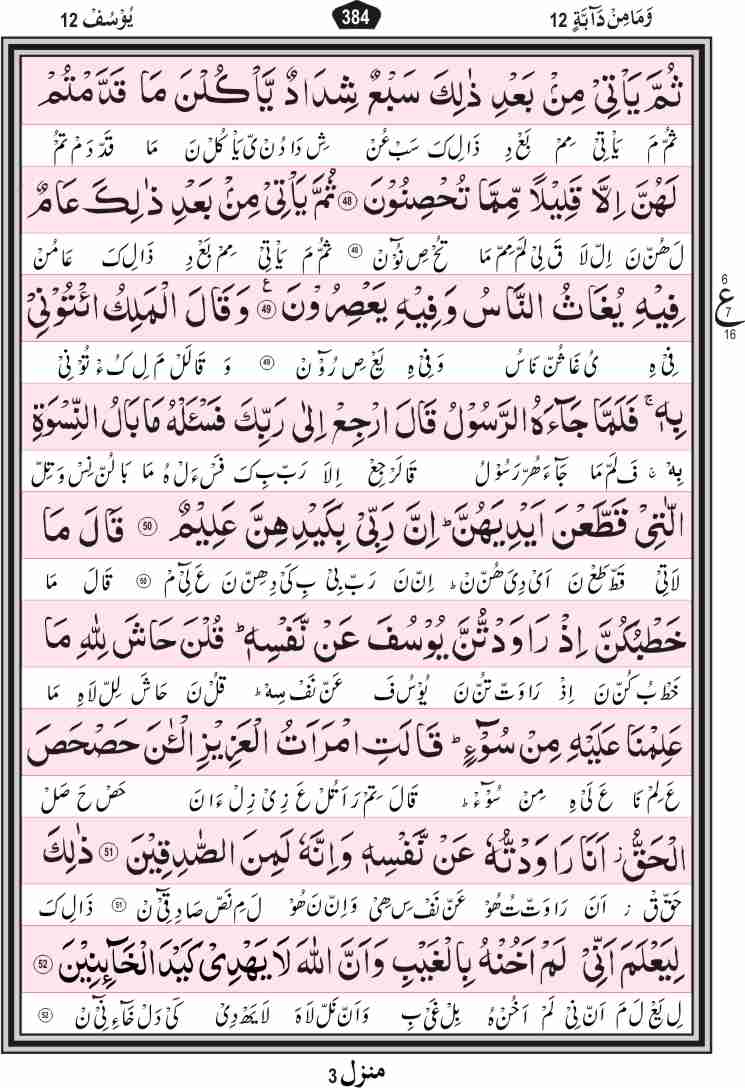 وَمَا مِنْ دَآبَّةٍ 12 384 يُوْسُفْ 12
ثُمَّ يَاْتِيْ مِنْۢ بَعْدِ ذٰلِكَ سَبْعٌ شِدَادٌ يَّاْكُلْنَ مَا قَدَّمْتُمْ
ثُمْ مَ يَاْتِيْ مِمْ بَعْ دِ ذَالِكَ سَبْ عُنْ شِ دَا دُ نْ یَّ يَاْ كُلْ نَ مَا قَدْ دَمْ تُمْ
لَهُنَّ اِلَّا قَلِيْلًا مِّمَّا تُحْصِنُوْنَ ۴۸ ثُمَّ يَاْتِيْ مِنْۢ بَعْدِ ذٰلِكَ عَامٌ
لَ هُنْ نَ اِلْ لَا قَ لِيْ لَمْ مِمْ مَا تُحْ صِ نُوْٓ نْ ۴۸ ثُمْ مَ يَاْتِيْ مِمْ بَعْ دِ ذَالِ كَ عَا مُنْ
فِيْهِ يُغَاثُ النَّاسُ وَفِيْهِ يَعْصِرُوْنَ ۴۹ ع وَقَالَ الْمَلِكُ ائْتُوْنِيْ
فِيْ هِ يُ غَا ثُنْ نَاسُ وَ فِيْ هِ يَعْ صِ رُوْٓ نْ ۴۹ وَ قَالَلْ مَ لِ كُ ءْ تُوْ نِيْ
6 ع 7 16
بِهٖ ۚ فَلَمَّا جَآءَهُ الرَّسُوْلُ قَالَ ارْجِعْ اِلٰى رَبِّكَ فَسْـَٔلْهُ مَا بَالُ النِّسْوَةِ
بِهْ ۚ فَ لَمْ مَا جَآءَ هُرْ رَسُوْلُ قَالَرْ جِعْ اِلَا رَبْ بِ كَ فَسْ ءَلْ هُ مَا بَا لُنْ نِسْ وَ تِلْ
الّٰتِيْ قَطَّعْنَ اَيْدِيَهُنَّ ؕ اِنَّ رَبِّيْ بِكَيْدِهِنَّ عَلِيْمٌ ۵۰ قَالَ مَا
لَاتِيْ قَطْ طَعْ نَ اَيْ دِيَ هُنْ نْ ؕ اِنْ نَ رَبْ بِيْ بِ كَيْ دِ هِنْ نَ عَ لِيْٓ مْ ۵۰ قَالَ مَا
خَطْبُكُنَّ اِذْ رَاوَدْتُّنَّ يُوْسُفَ عَنْ نَّفْسِهٖ ؕ قُلْنَ حَاشَ لِلّٰهِ مَا
خَطْ بُ كُنْ نَ اِذْ رَا وَتْ تُنْ نَ يُوْسُ فَ عَنْ نَفْ سِهْ ؕ قُلْ نَ حَاشَ لِلْ لَاهِ مَا
عَلِمْنَا عَلَيْهِ مِنْ سُوْٓءٍ ؕ قَالَتِ امْرَاَتُ الْعَزِيْزِ الْـٰٔنَ حَصْحَصَ
عَ لِمْ نَا عَ لَيْ هِ مِنْ سُوْٓءْ ؕ قَالَ تِمْ رَاَتُلْ عَ زِيْ زِلْ ءَانَ حَصْ حَ صَلْ
الْحَقُّ ؗ اَنَا رَاوَدْتُّهٗ عَنْ نَّفْسِهٖ وَاِنَّهٗ لَمِنَ الصّٰدِقِيْنَ ۵۱ ذٰلِكَ
حَقْ قْ ؗ اَنَ رَا وَتْ تُ هُوْ عَنْ نَفْ سِ هِيْ وَ اِنْ نَ هُوْ لَ مِ نَصْ صَا دِ قِيْٓ نْ ۵۱ ذَالِ كَ
لِيَعْلَمَ اَنِّيْ لَمْ اَخُنْهُ بِالْغَيْبِ وَاَنَّ اللّٰهَ لَا يَهْدِيْ كَيْدَ الْخَآئِنِيْنَ ۵۲
لِ يَعْ لَ مَ اَنْ نِيْ لَمْ اَخُنْ هُ بِلْ غَيْ بِ وَ اَنْ نَلْ لَاهَ لَا يَهْ دِيْ كَيْ دَلْ خَآءِ نِيْٓ نْ ۵۲
منزل 3